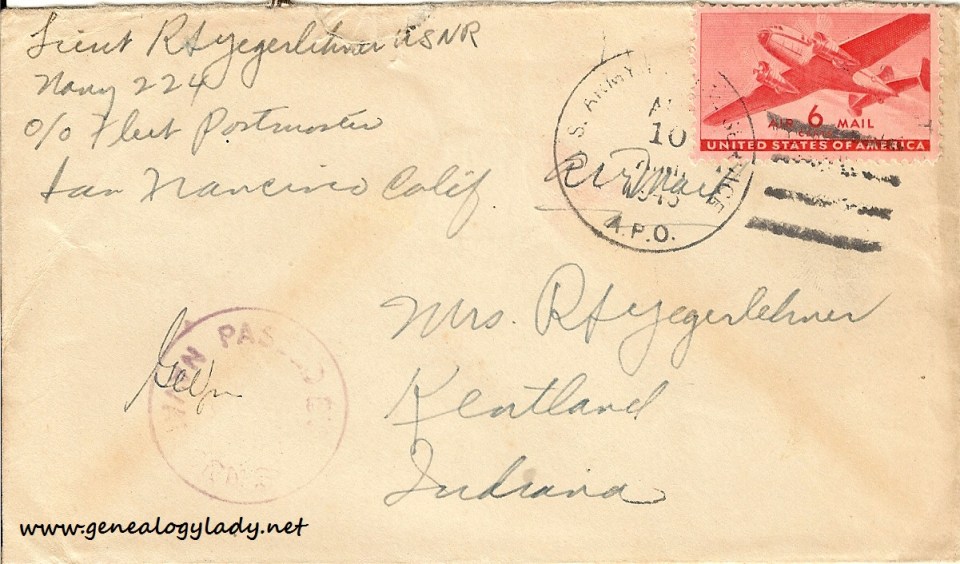 Lieut RH Yegerlehner USNR
Navy 224
c/o Fleet Postmaster
San Francisco Calif
Air Mail
U.S. ARMY
10
1945
A.P.O.
AIR 6 MAIL
UNITED STATES OF AMERICA
Mrs. RH Yegerlehner
Kentland
Indiana
PAS
www.genealogylady.net